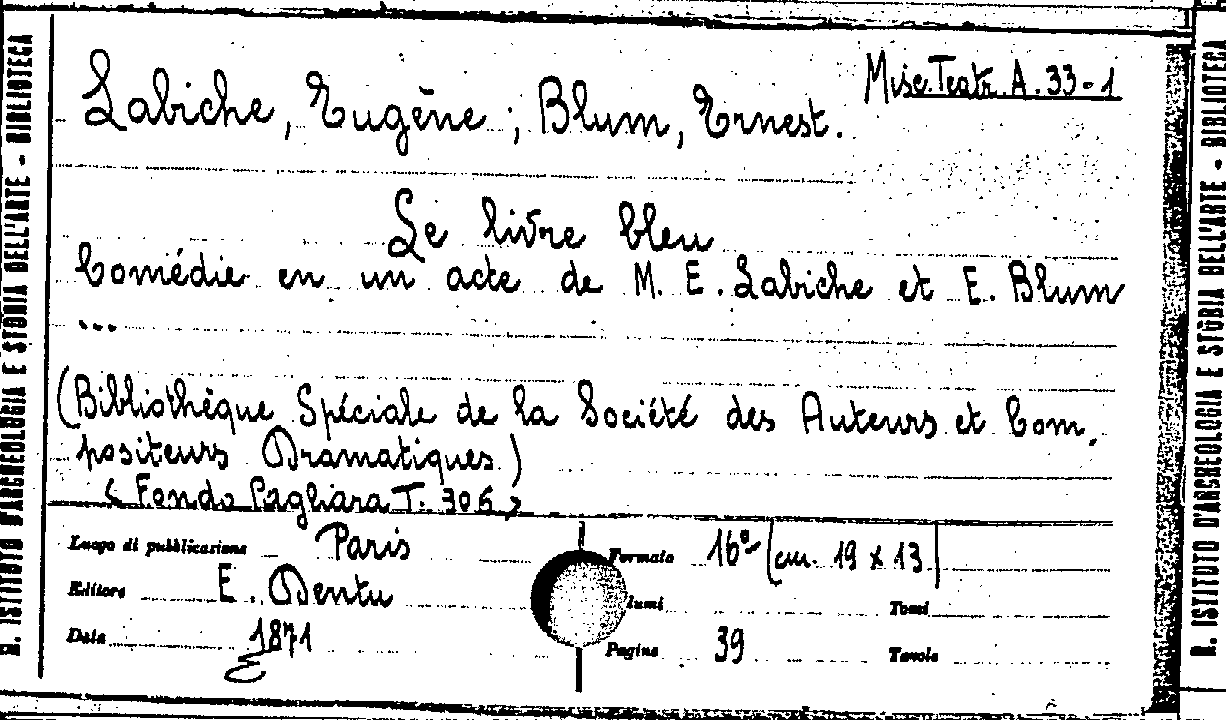 Misc. Teatr. A. 33-1
Labiche, Eugène ; Blum, Ernest.
Le livre bleu
Comédie en un acte de M. E. Labiche et E. Blum
...
(Bibliothèque Spéciale de la Société des Auteurs et Com.
positeurs Dramatiques)
< Fondo Pagliara T. 306 >
Luogo di pubblicazione Paris
Formato 16° (cm. 19 x 13)
Editore E. Dentu
lumi
Tomi
Data 1871
Pagine 39
Tavole
R. ISTITUTO D'ARCHEOLOGIA E STORIA DELL'ARTE - BIBLIOTECA
R. ISTITUTO D'ARCHEOLOGIA E STORIA DELL'ARTE - BIBLIOTECA